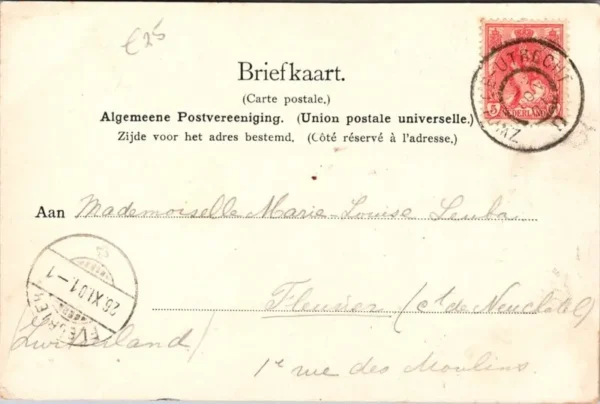 € 25
Briefkaart.
(Carte postale.)
Algemeene Postvereeniging. (Union postale universelle.)
Zijde voor het adres bestemd. (Côté réservé à l'adresse.)
UTRECHT
5
NEDERLAND
Aan Mademoiselle Marie-Louise Leuba
FLEURIER
26.XI.01.-1
Fleurier (ct de Neuchâtel)
(Zwitserland)
1e rue des Moulins.